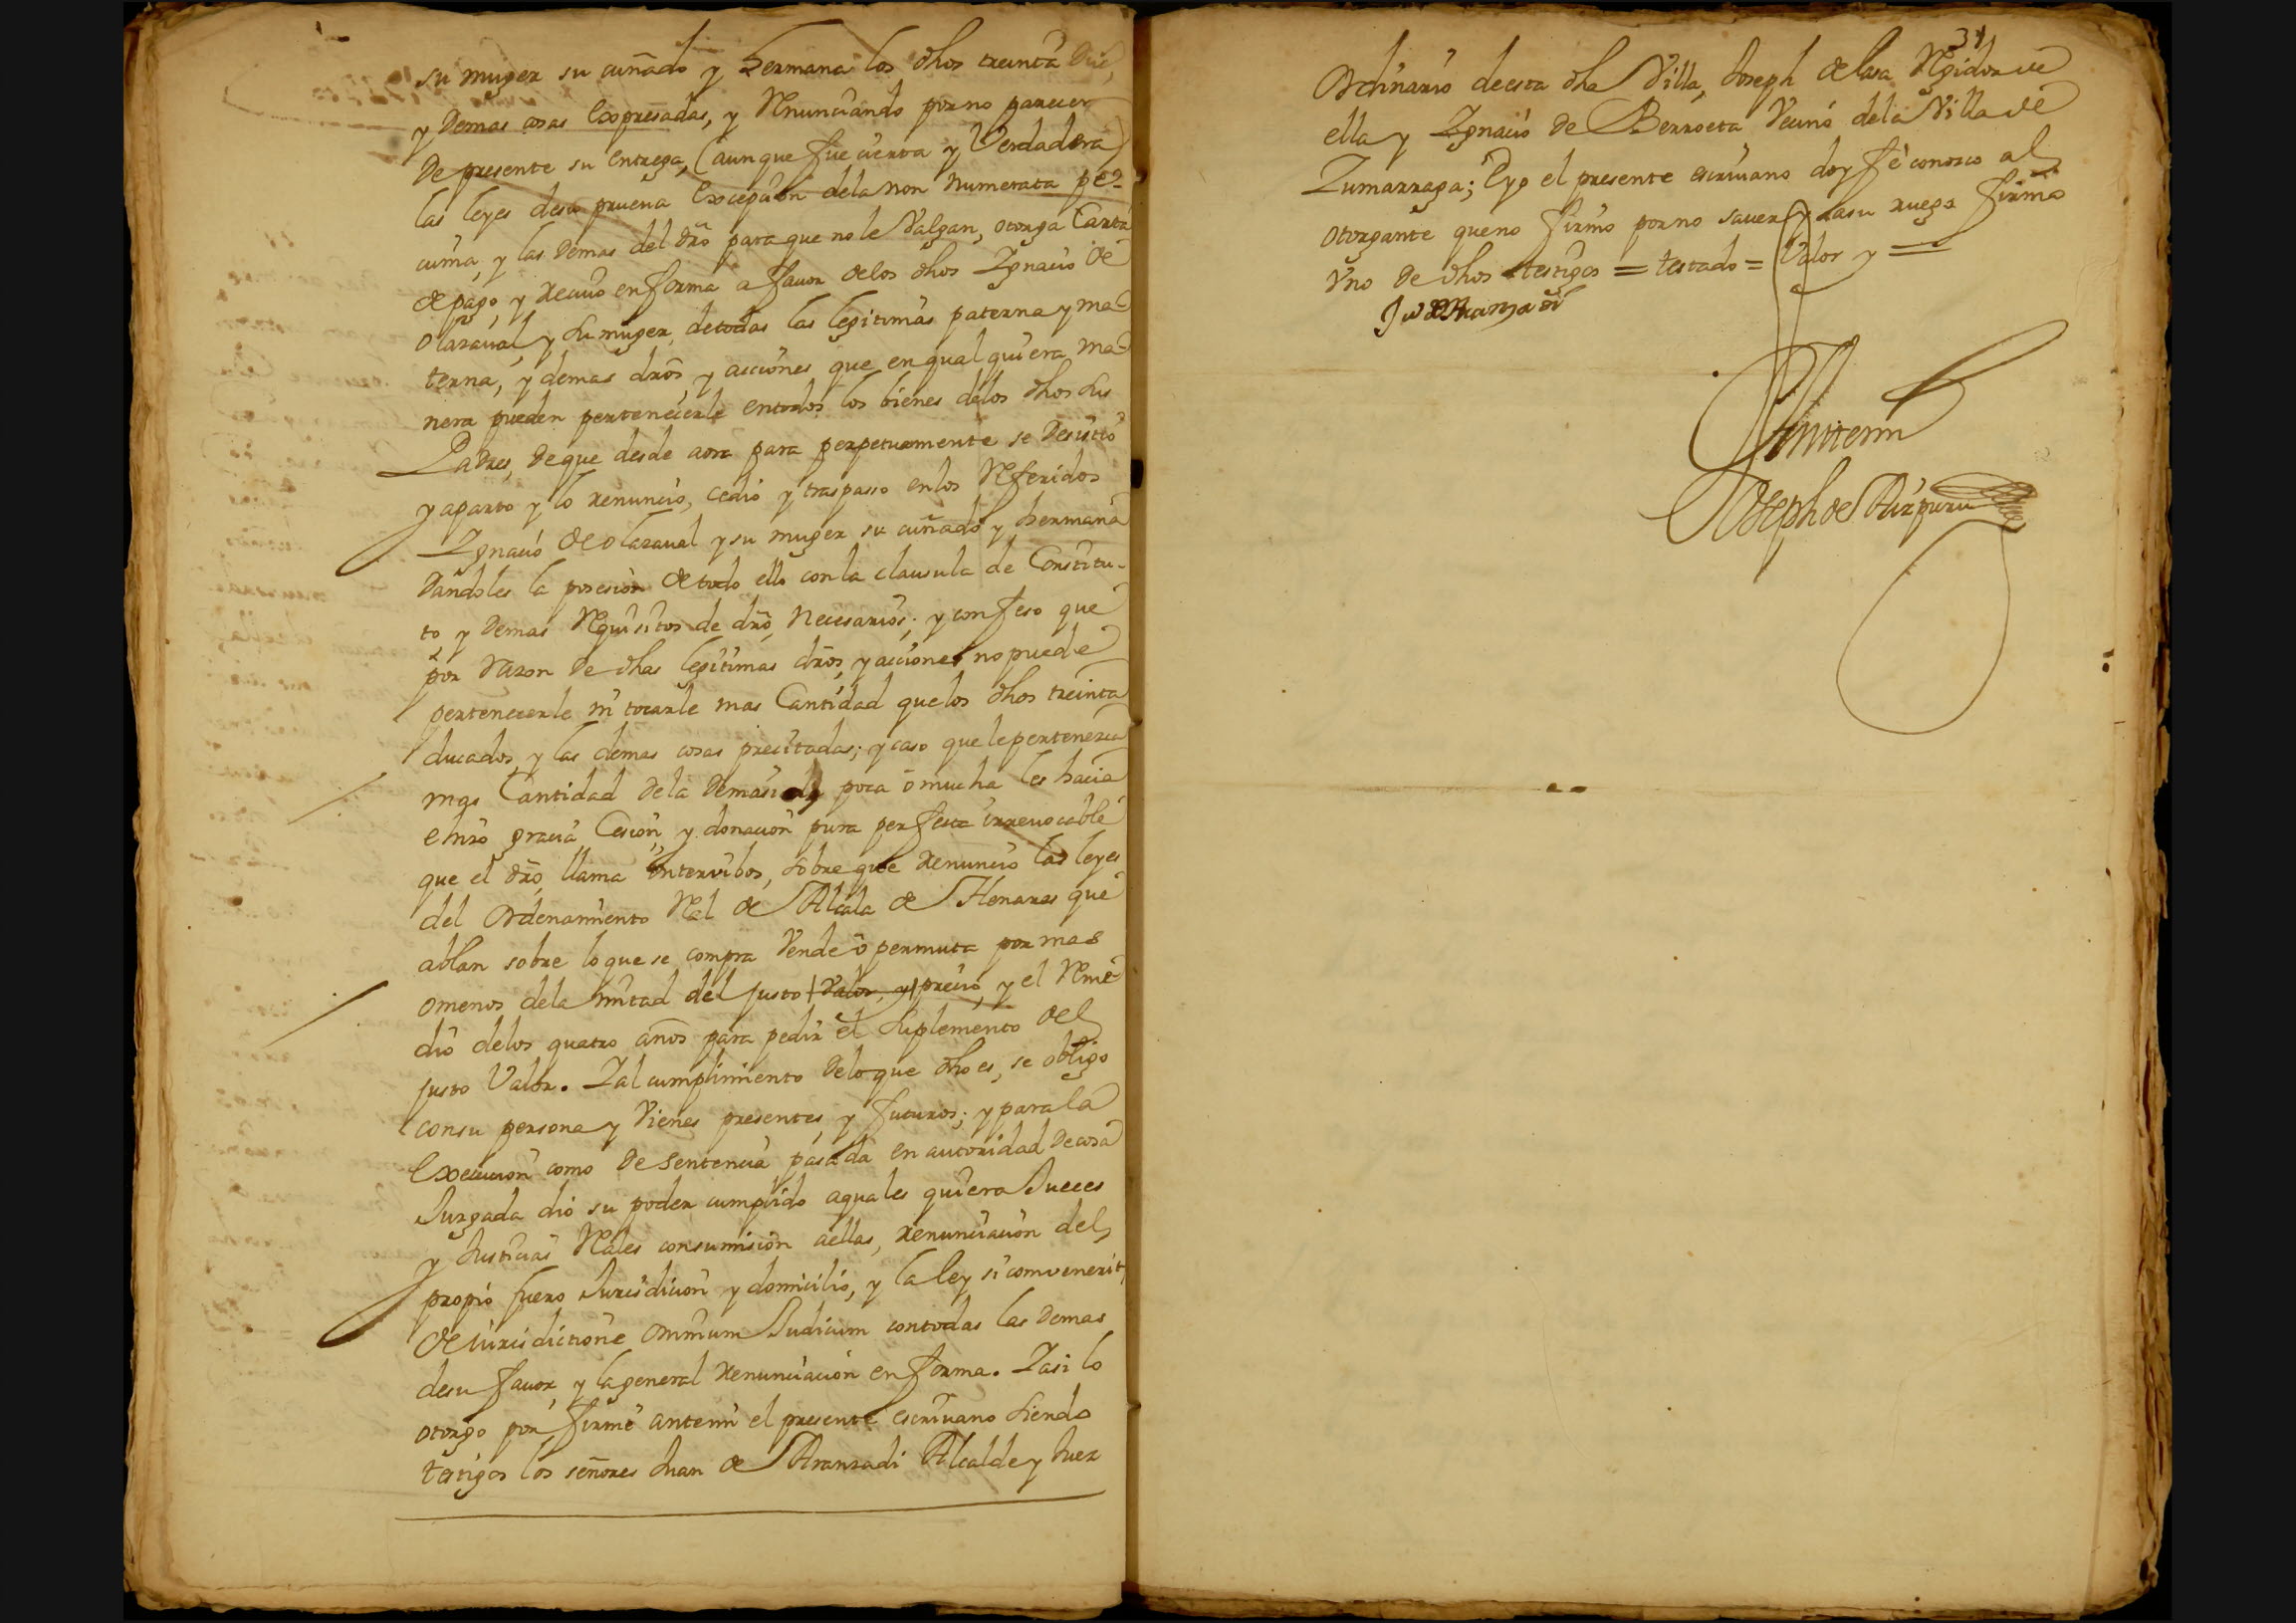 su muger su cuñado y hermana los dhos treinta Duc,
y Demas cosas Expresadas, y Renunciando por no parecer
De presente su entrega, (aunque fue cierta y Verdadera)
las leyes desu prueua Excepcion dela non numerata pe-
cunia, y las Demas del dro para que no le Valgan, otorga Carta
de pago, y reciuo en forma a fauor delos dhos Ygnacio de
Olazaual, y su muger, detodas las legitimas paterna y ma-
terna, y demas dros, y acciones que en qual quiera ma-
nera pueden pertenecerle entodos los bienes delos dhos sus
Padres, de que desde aora para perpetuamente se Desistio
y aparto y lo renuncio, cedio y traspasso en los Referidos
Ygnacio de Olazaual y su muger su cuñado y hermana
Dandoles la posesion de todo ello con la clausula de Constitu-
to y Demas Requisitos de dro, Necesarios; y confeso que
por Razon de dhas legitimas dros, y acciones no puede
pertenecerle ni tocarle mas Cantidad que los dhos treinta
ducados, y las demas cosas precitadas; y caso que le pertenezca
mas Cantidad Dela Demasia poca ò mucha les hacia
e hizo gracia, Cesion, y donacion pura perfecta irreuocable
que el dro, llama intervibos, sobre que renuncio las leyes
del Ordenamiento Ral de Alcala de Henares que
ablan sobre lo que se compra Vende ò permuta por mas
omenos dela mitad del justo Valor, y precio, y el Reme-
dio delos quatro años para pedir el Suplemento del
justo Valor. Y al cumplimiento Delo que dho es, se obligo
consu persona y Vienes presentes, y futuros; y para la
Execucion como De Sentencia pasada en autoridad De cosa
Juzgada dio su poder cumplido aquales quiera Jueces
y Justicias Rales consumision aellas, renunciacion del
propio fuero Jurisdicion y domicilio, y la ley si convenerit,
de iurisdictione Omnium Judicum contodas las Demas
desu fauor, y la general Renunciacion en forma. Y asi lo
otorgo por firme antemi el presente escriuano siendo
testigos los señores Juan de Aranzadi Alcalde y Juez
31
Ordinario deesta dha Villa, Joseph de lasa Regidor de
ella y Ygnacio de Berroeta Vecino dela Villa de
Zumarraga; E yo el presente escriuano doy fè conozco al
otorgante que no firmo por no sauer, y a su ruego firmo
Vno De dhos testigos = testado = Valor y =
Ju de Aranzadi
Antemi
Joseph de Aizpuru